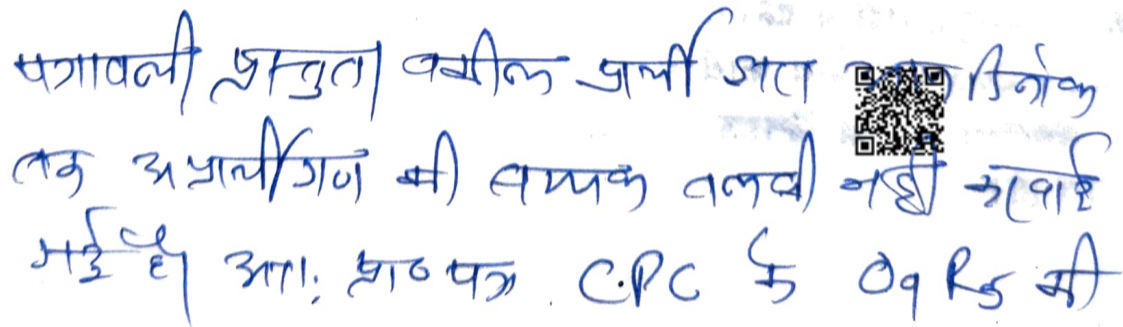 पत्रावली प्रस्तुत। वकील प्रार्थी ज्ञात दिनांक
तक अप्रार्थीगण की सम्यक तलबी नही करवाई
गई है। अतः प्रा० पत्र C.P.C के O9 R5 की